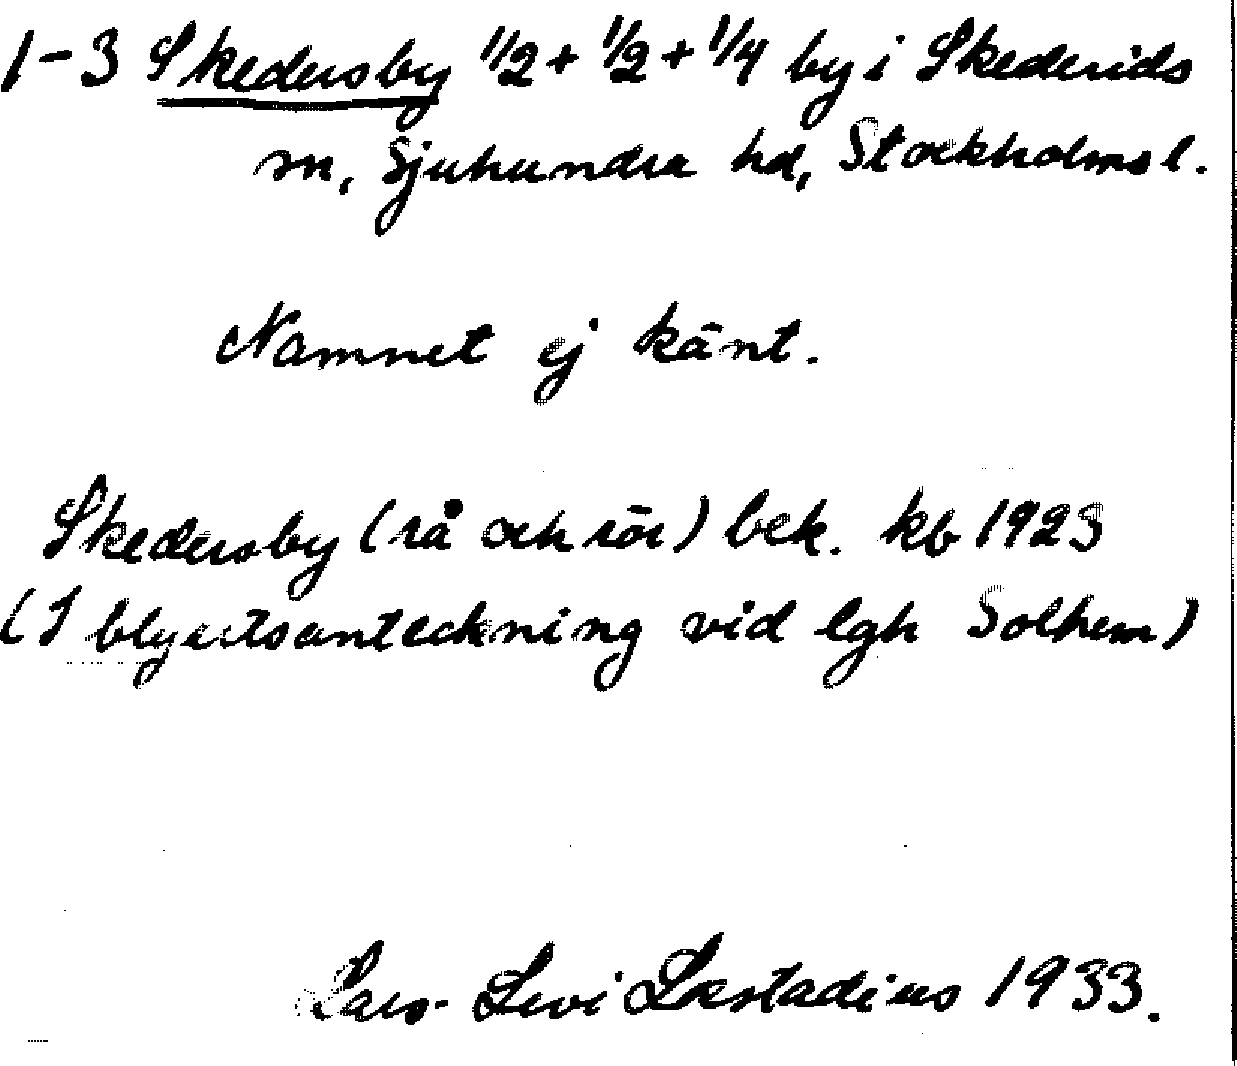 1-3 Skedersby 1/2 + 1/2 + 1/4 by i Skederids
sn, Sjuhundra hd, Stockholms l.
Namnet ej känt.
Skedersby (rå och rör) bek. kb 1923
(I blyertsanteckning vid lgh Solhem)
Lars-Levi Læstadius 1933.